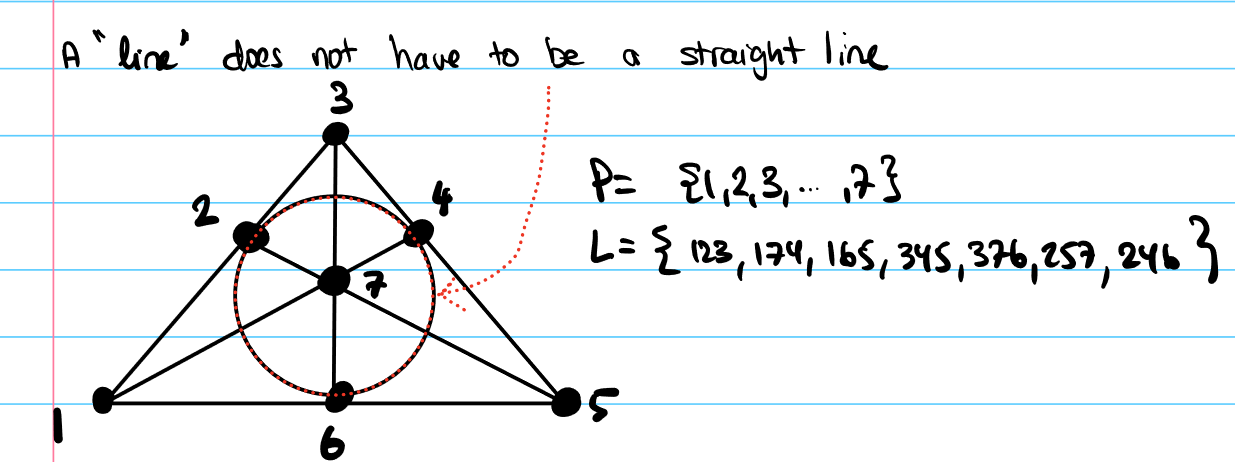 A "line" does not have to be a straight line
3
2
4
P= {1,2,3,...,7}
L={123,174,165,345,376,257,246}
7
1
5
6